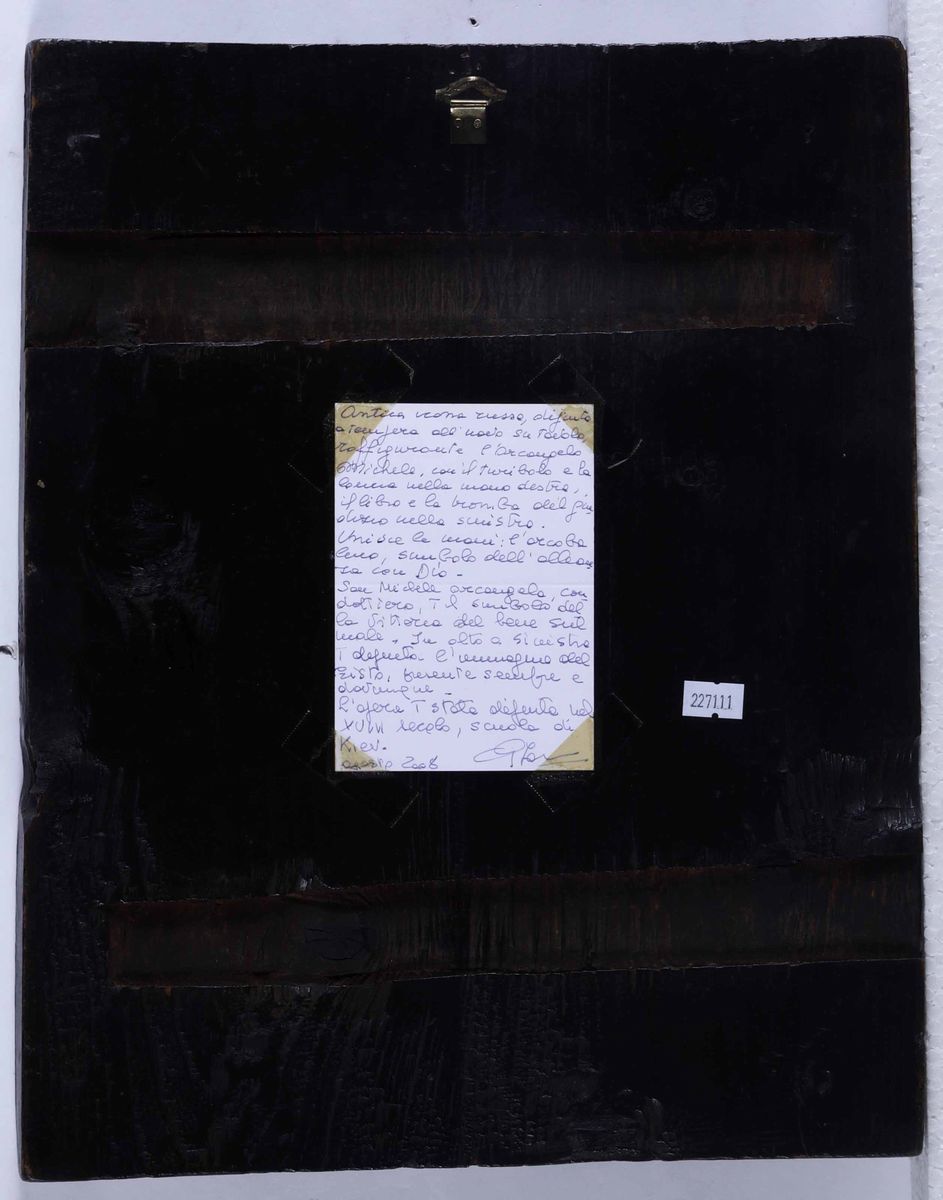 Antica icona russa, dipinta
a tempera all'uovo su tavola
raffigurante l'Arcangelo
Michele, con il turibolo e la
lancia nella mano destra,
il libro e la tromba del giu
dizio nella sinistra.
Unisce le mani: l'arcoba
leno, simbolo dell'allean
za con Dio -
San Michele arcangelo, con
dottiero, È il simbolo del
la vittoria del bene sul
male. In alto a sinistra
È dipinta l'immagine del
Cristo, presente sempre e
dovunque -
L'opera È stata dipinta nel
XVIII secolo, scuola di
Kiev.
2008
227111